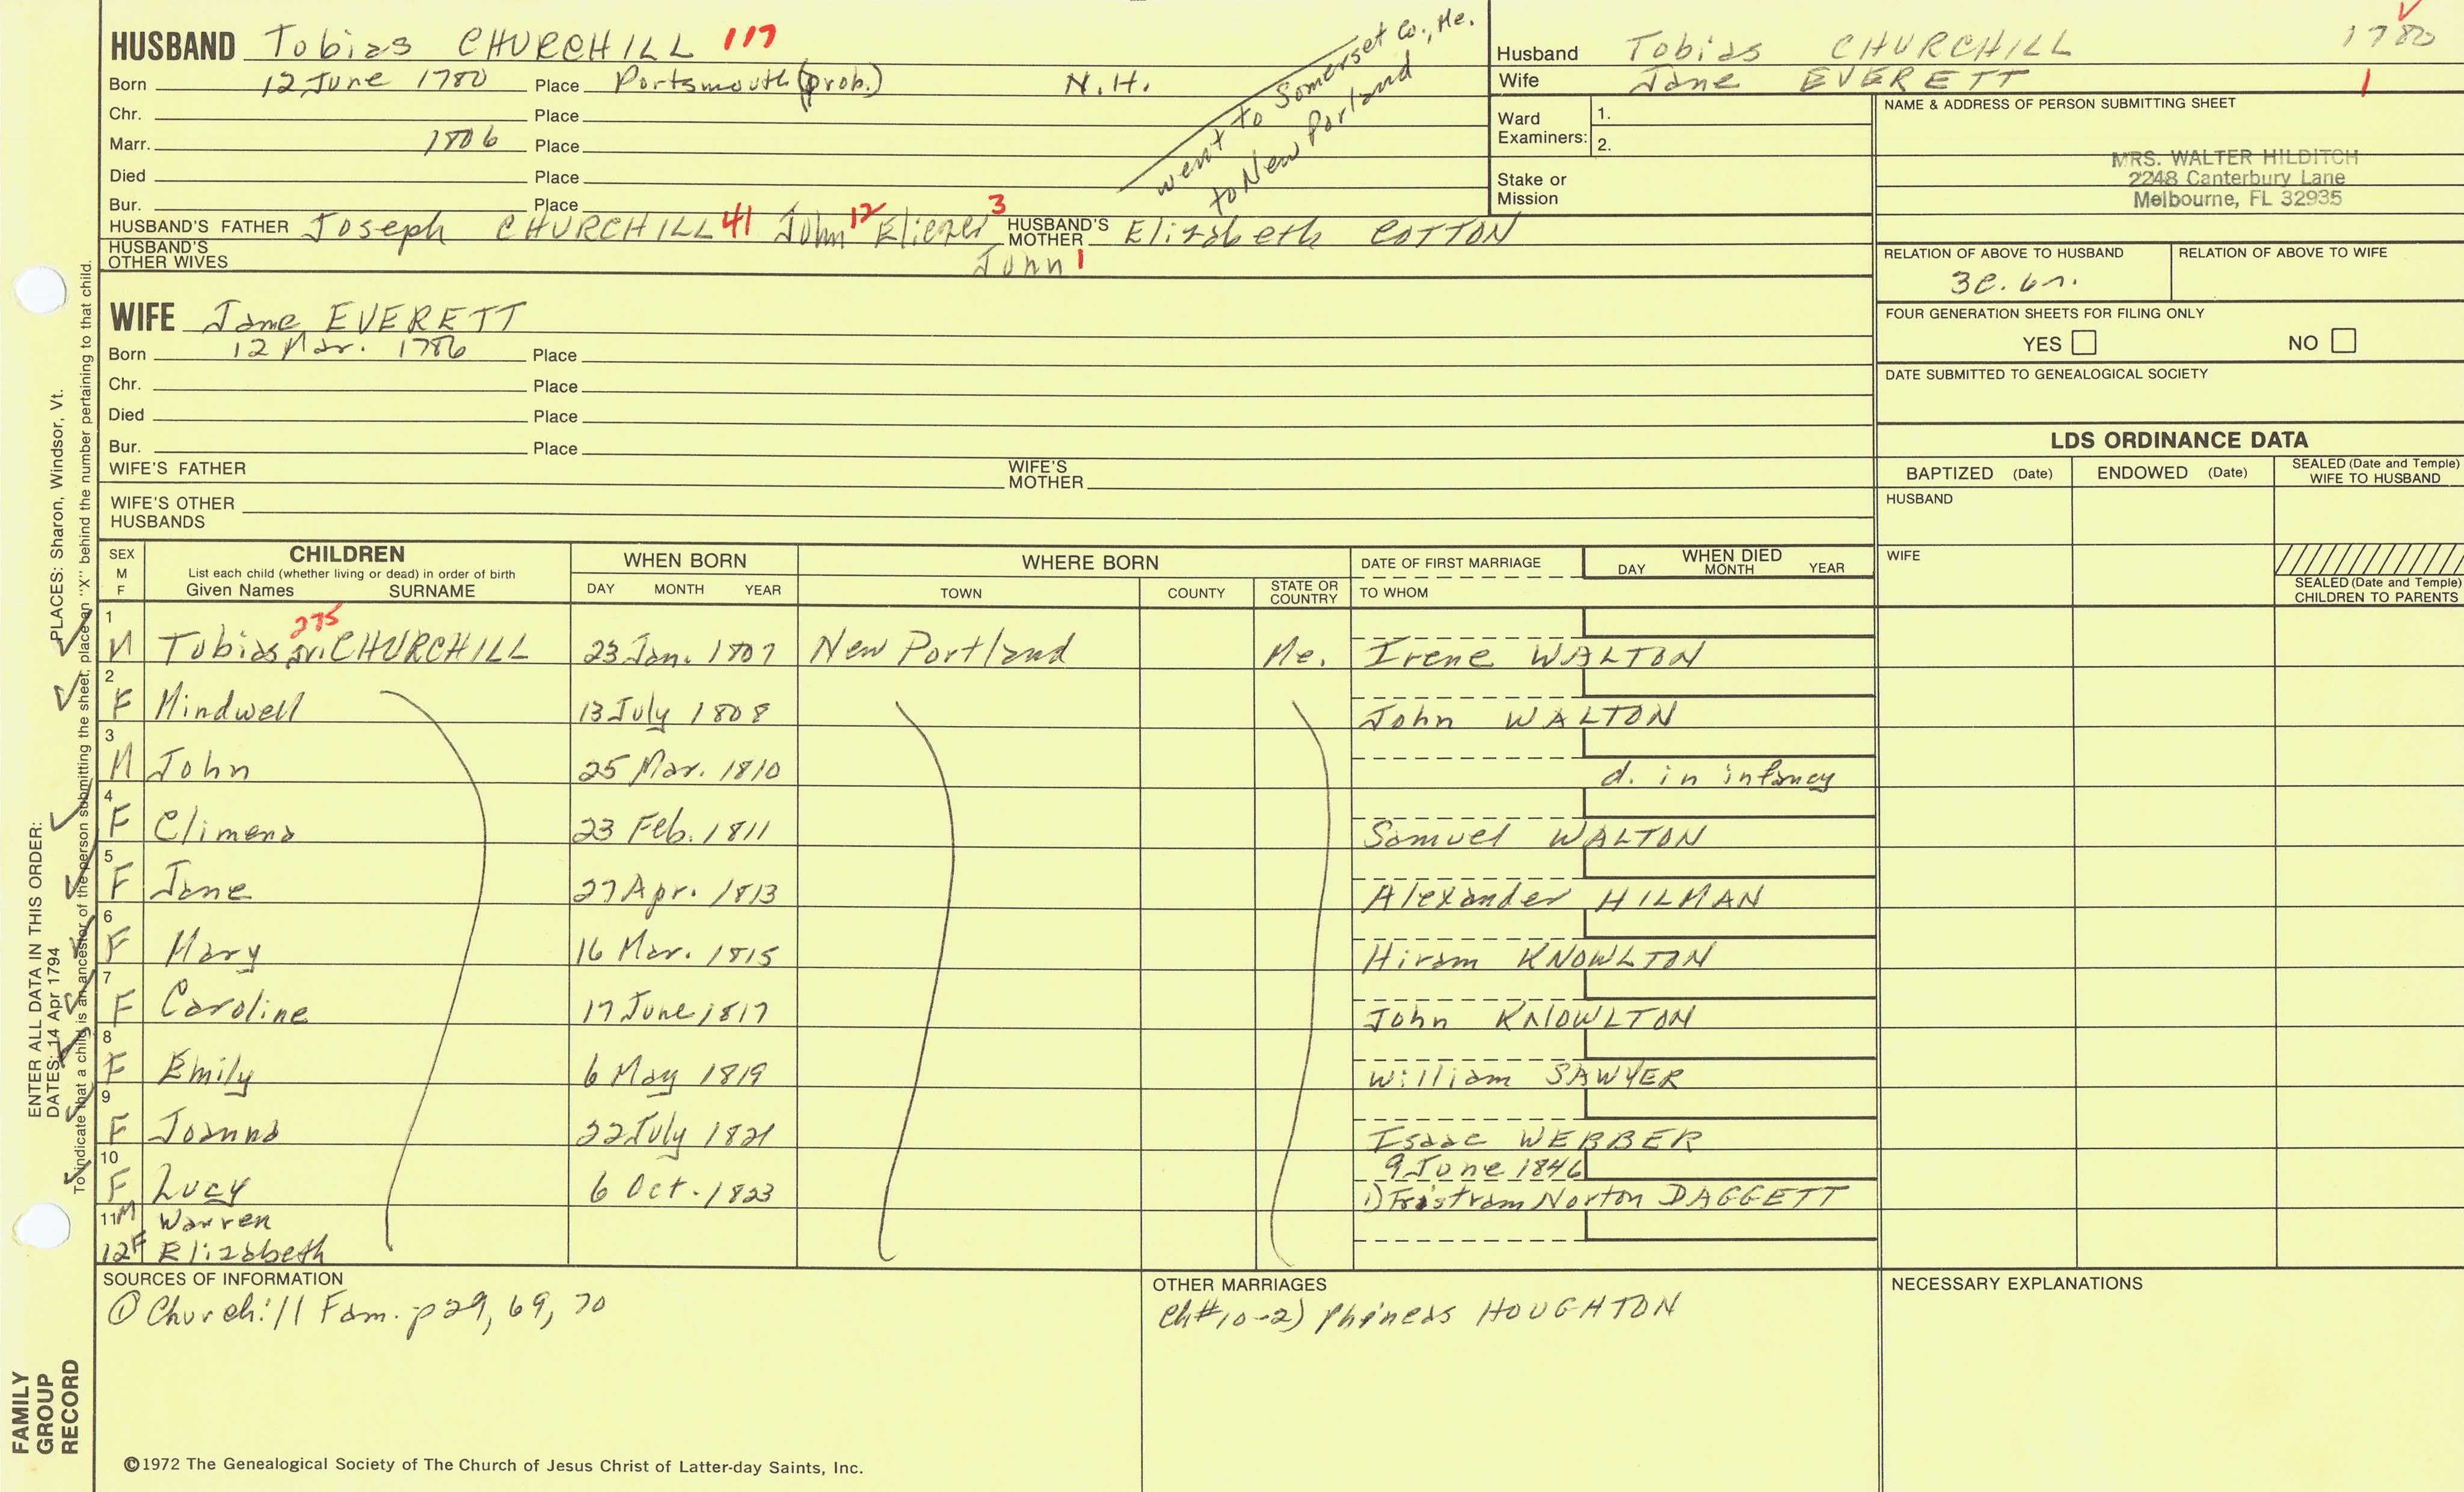 HUSBAND Tobias CHURCHILL 117
Born 12 June 1780 Place Portsmouth (prob.) N.H.
Chr. Place
Marr. 1806 Place
Died Place
Bur. Place
went to Somerset Co., Me.
to New Porland
HUSBAND'S FATHER Joseph CHURCHILL 41 John 12 Eliezer 3 HUSBAND'S MOTHER Elizabeth COTTON
HUSBAND'S OTHER WIVES John 1
WIFE Jane EVERETT
Born 12 Mar. 1786 Place
Chr. Place
Died Place
Bur. Place
WIFE'S FATHER WIFE'S MOTHER
WIFE'S OTHER HUSBANDS
Husband Tobias CHURCHILL 1780
Wife Jane EVERETT 1
Ward Examiners: 1.
2.
Stake or Mission
NAME & ADDRESS OF PERSON SUBMITTING SHEET
MRS. WALTER HILDITCH
2248 Canterbury Lane
Melbourne, FL 32935
RELATION OF ABOVE TO HUSBAND RELATION OF ABOVE TO WIFE
FOUR GENERATION SHEETS FOR FILING ONLY
YES NO
DATE SUBMITTED TO GENEALOGICAL SOCIETY
LDS ORDINANCE DATA
BAPTIZED (Date) ENDOWED (Date) SEALED (Date and Temple) WIFE TO HUSBAND
HUSBAND
WIFE
SEALED (Date and Temple) CHILDREN TO PARENTS
SEX M F CHILDREN List each child (whether living or dead) in order of birth Given Names SURNAME
WHEN BORN DAY MONTH YEAR
WHERE BORN TOWN COUNTY STATE OR COUNTRY
DATE OF FIRST MARRIAGE TO WHOM
WHEN DIED DAY MONTH YEAR
1 M Tobias Jr. CHURCHILL 275 23 Jan. 1807 New Portland Me. Irene WALTON
2 F Mindwell 13 July 1808 John WALTON
3 M John 25 Mar. 1810 d. in infancy
4 F Climena 23 Feb. 1811 Samuel WALTON
5 F Jane 27 Apr. 1813 Alexander HILMAN
6 F Mary 16 Mar. 1815 Hiram KNOWLTON
7 F Caroline 17 June 1817 John KNOWLTON
8 F Emily 6 May 1819 William SAWYER
9 F Joanna 22 July 1821 Isaac WEBBER
9 June 1846
10 F Lucy 6 Oct. 1823 1) Tristram Norton DAGGETT
11 M Warren
12 F Elizabeth
SOURCES OF INFORMATION
① Churchill Fam. p 29, 69, 70
OTHER MARRIAGES
Ch #10-2) Phineas HOUGHTON
NECESSARY EXPLANATIONS
©1972 The Genealogical Society of The Church of Jesus Christ of Latter-day Saints, Inc.
FAMILY GROUP RECORD
ENTER ALL DATA IN THIS ORDER:
DATES: 14 Apr 1794 PLACES: Sharon, Windsor, Vt.
To indicate that a child is an ancestor of the person submitting the sheet, place an "X" behind the number pertaining to that child.